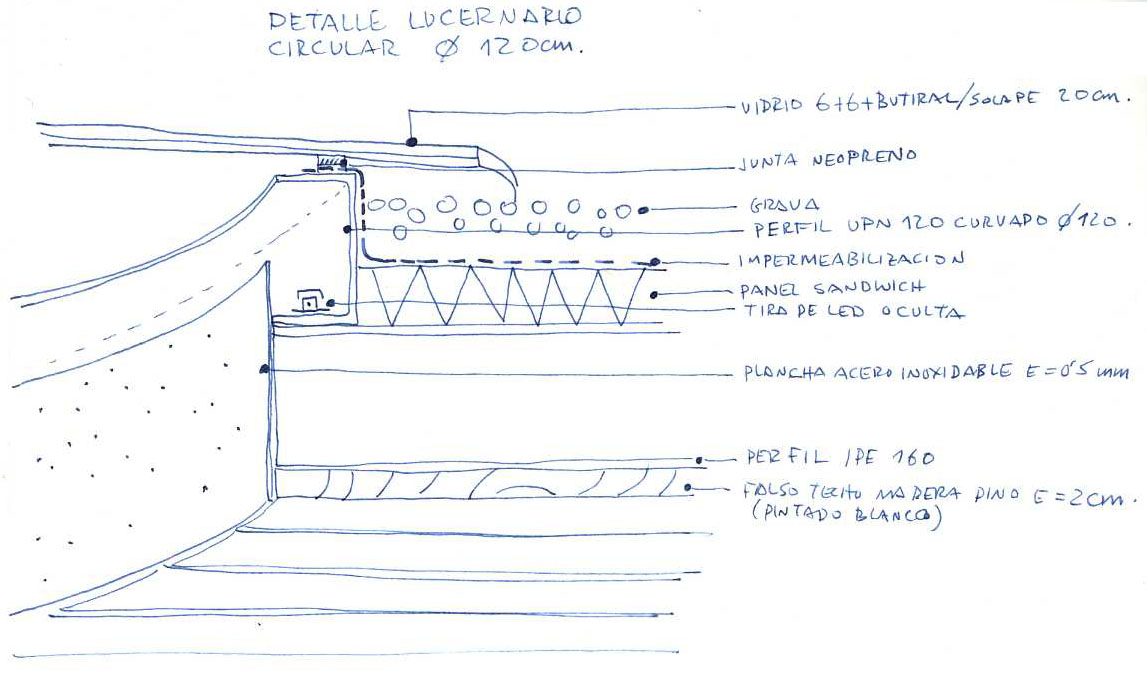 DETALLE LUCERNARIO
CIRCULAR Ø 120cm.
VIDRIO 6+6+BUTIRAL/SOLAPE 20cm.
JUNTA NEOPRENO
GRAVA
PERFIL UPN 120 CURVADO Ø120.
IMPERMEABILIZACION
PANEL SANDWICH
TIRA DE LED OCULTA
PLANCHA ACERO INOXIDABLE E=0'5mm
PERFIL IPE 160
FALSO TECHO MADERA PINO E=2cm.
(PINTADO BLANCO)